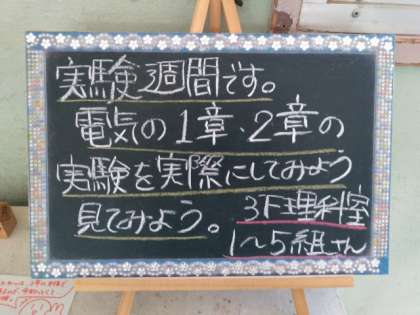 実験週間です。
電気の1章・2章の
実験を実際にしてみよう
見てみよう。 3下理科室
1〜5組さん